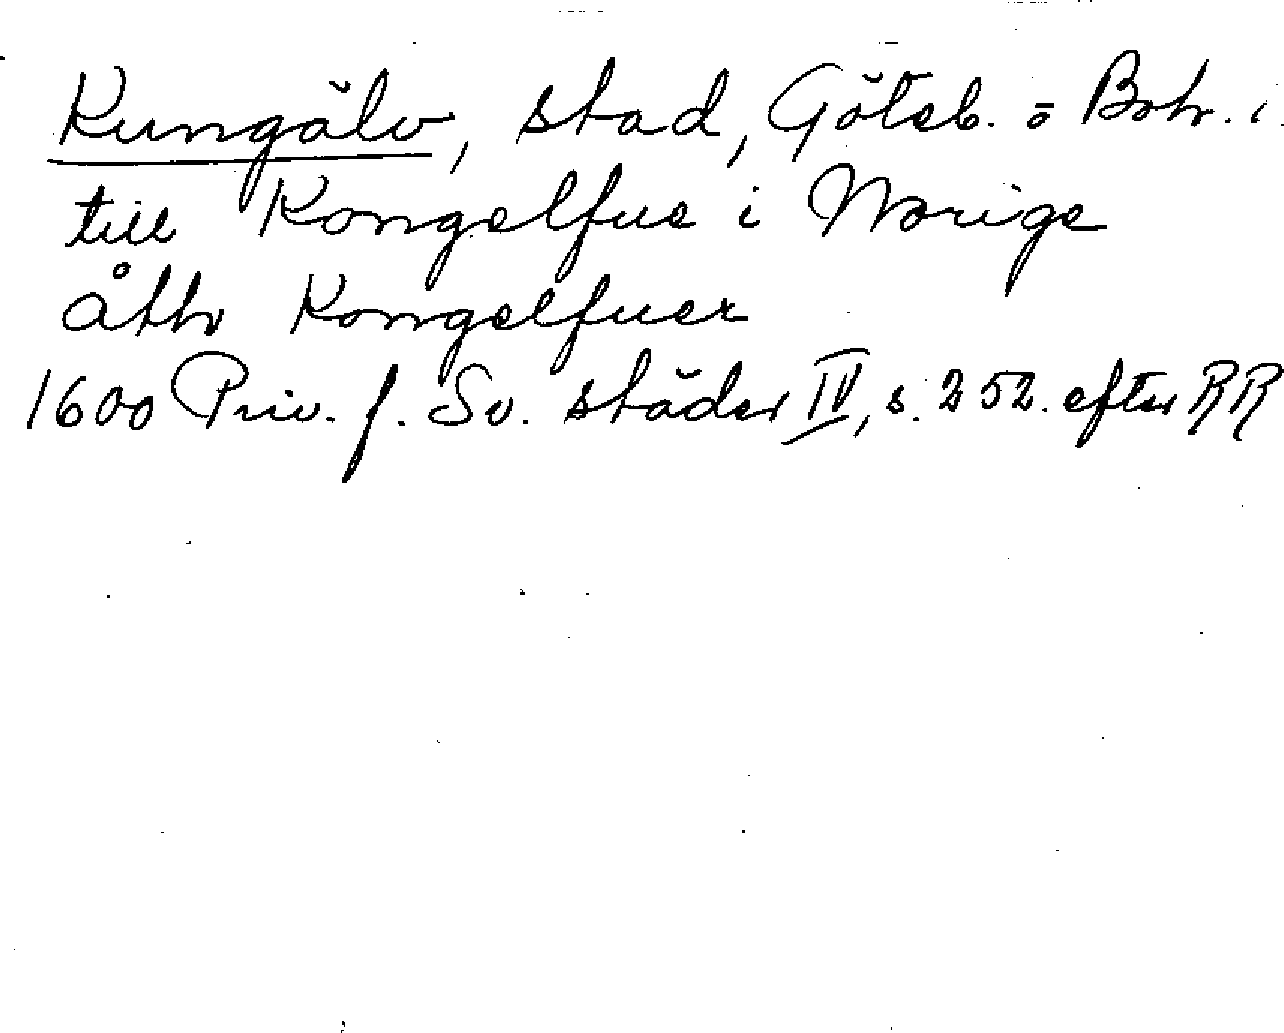 Kungälv, stad, Göteb. o Boh. i.
till Kongelfue i Norige
åth Kongelfuer
1600 Priv. f. Sv. städer IV, s. 252. efter RR